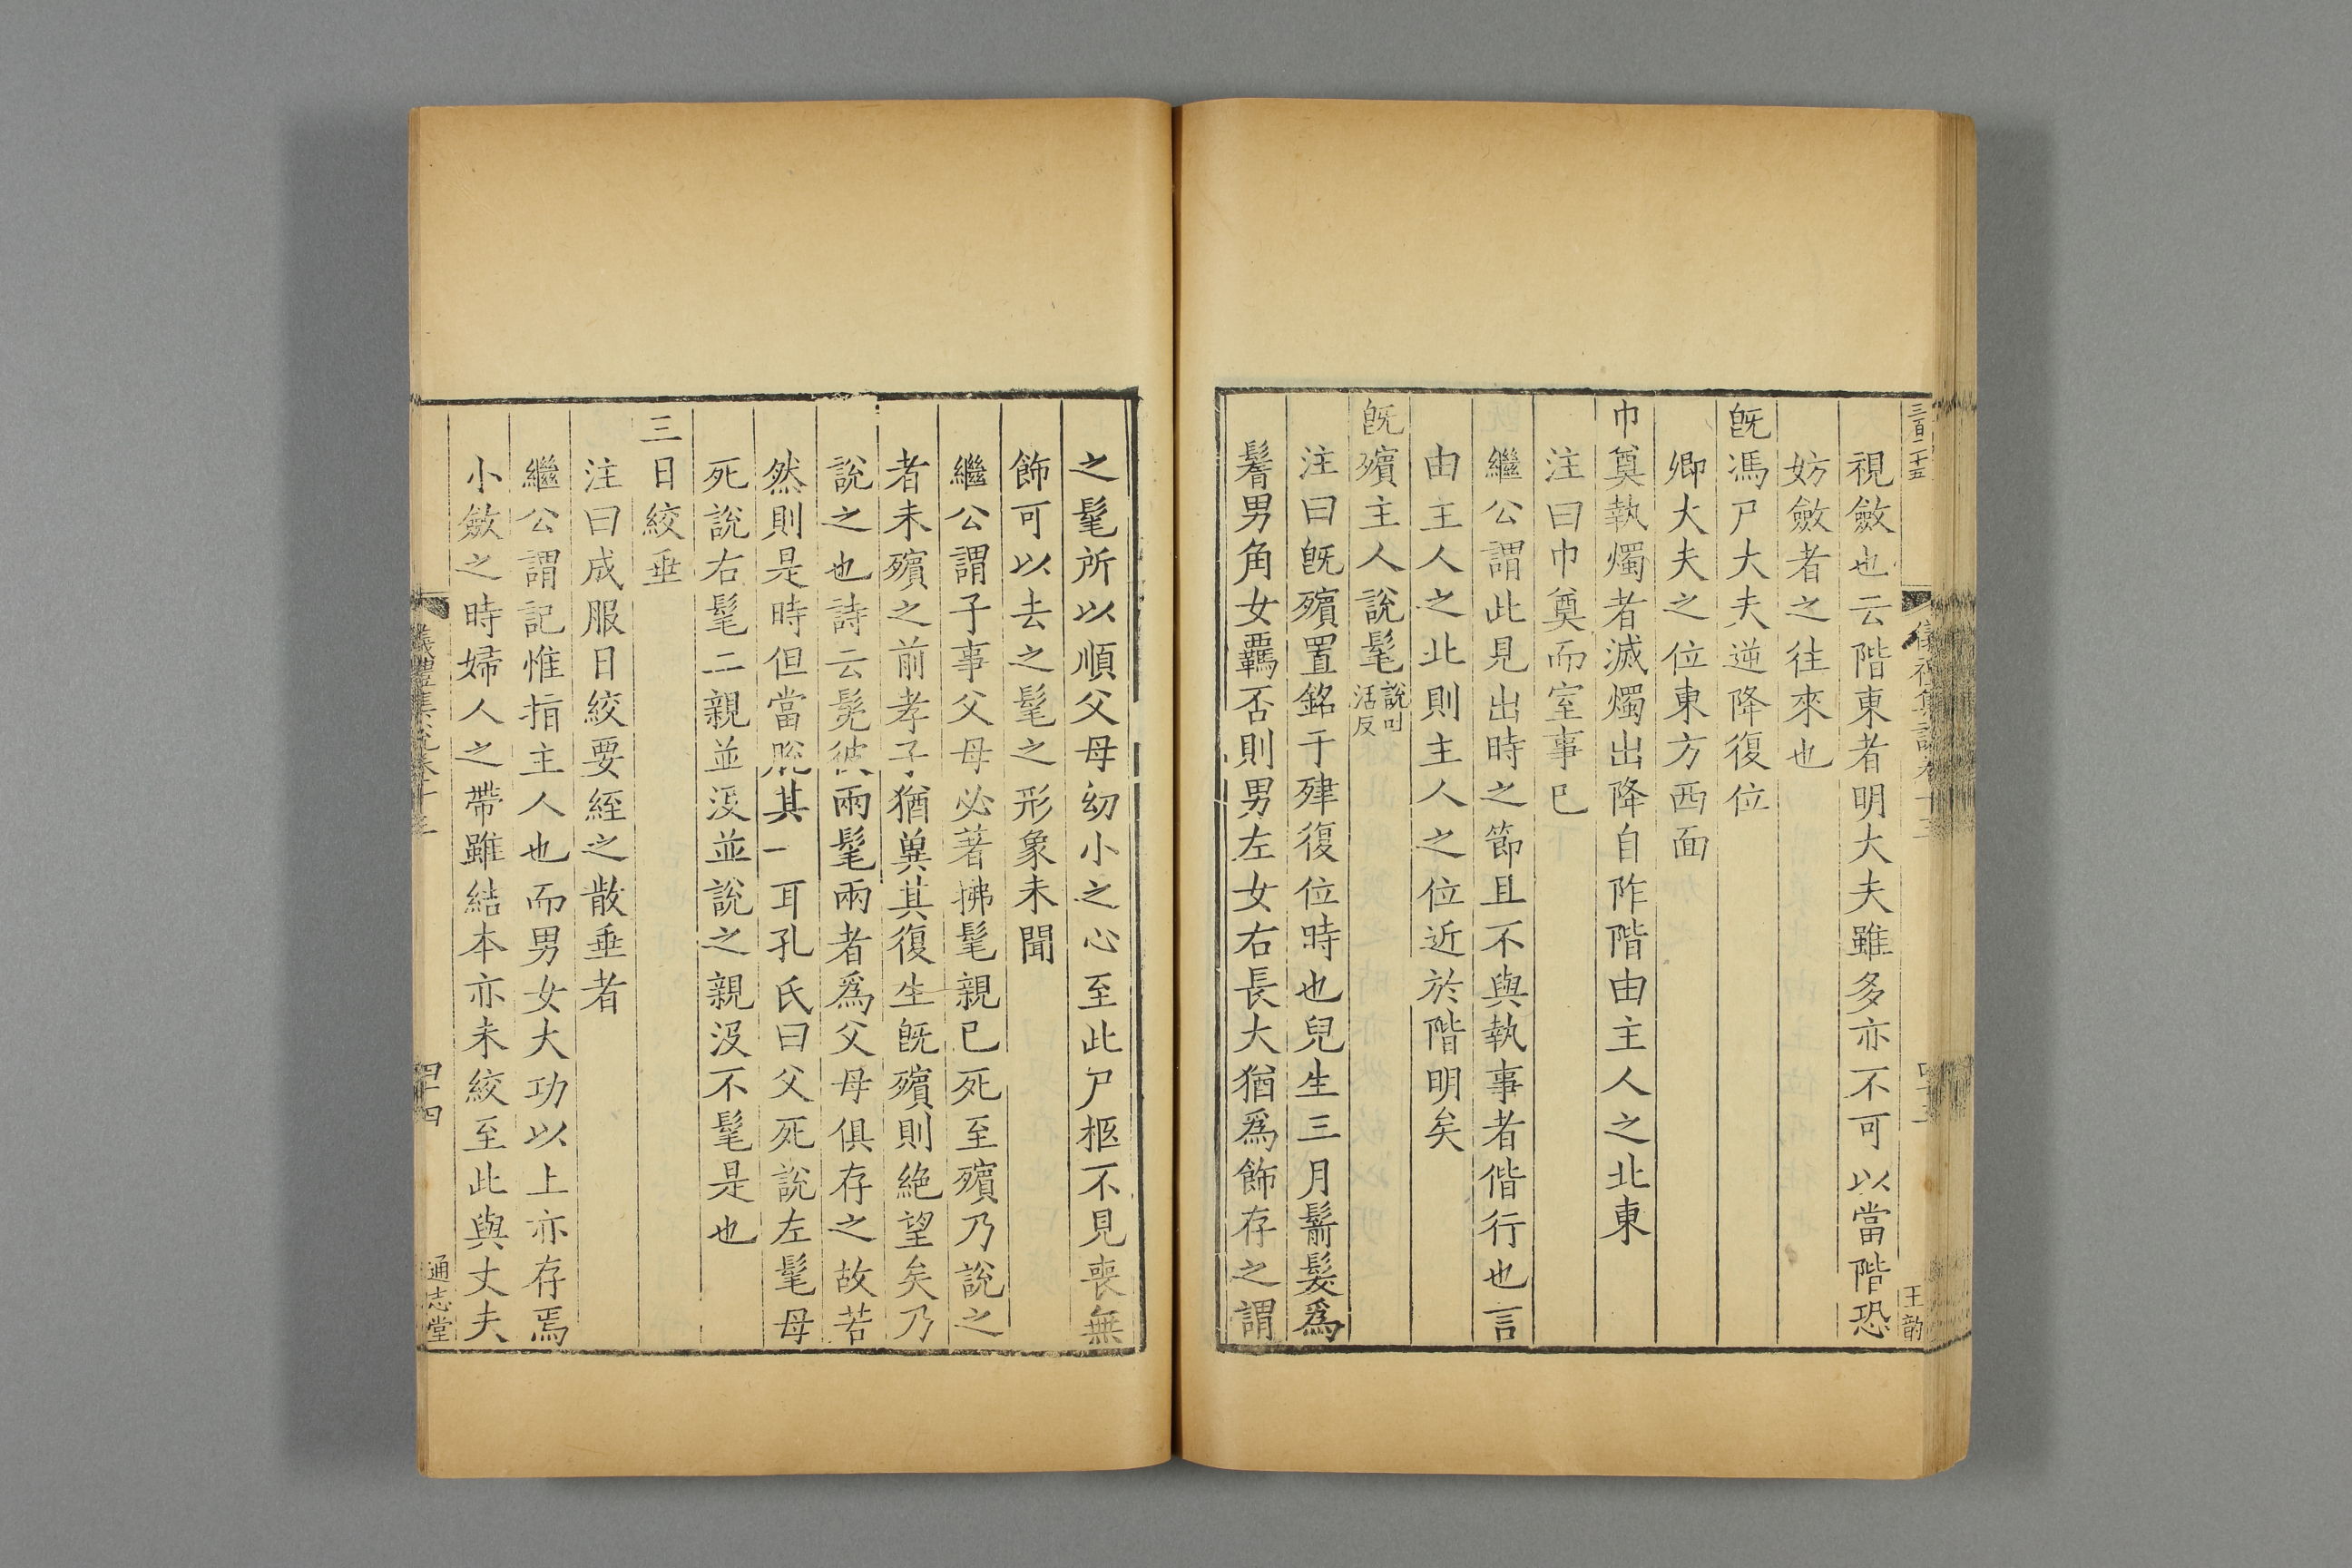 三百二十五
視斂也云階東者明大夫雖多亦不可以當階恐
妨斂者之往來也
旣馮尸大夫逆降復位
卿大夫之位東方西面
巾奠執燭者滅燭出降自阼階由主人之北東
注曰巾奠而室事已
繼公謂此見出時之節且不與執事者偕行也言
由主人之北則主人之位近於階明矣
旣殯主人說髦說吐活反
注曰旣殯置銘于肂復位時也兒生三月鬋髮爲
鬌男角女羈否則男左女右長大猶爲飾存之謂
王韵
之髦所以順父母幼小之心至此尸柩不見喪無
飾可以去之髦之形象未聞
繼公謂子事父母必著拂髦親已死至殯乃說之
者未殯之前孝子猶兾其復生旣殯則絕望矣乃
說之也詩云髧彼兩髦兩者爲父母俱存之故若
然則是時但當脫其一耳孔氏曰父死說左髦母
死說右髦二親並沒並說之親沒不髦是也
三日絞垂
注曰成服日絞要絰之散垂者
繼公謂記惟指主人也而男女大功以上亦存焉
小斂之時婦人之帶雖結本亦未絞至此與丈夫
儀禮集說卷十三
四十四
通志堂